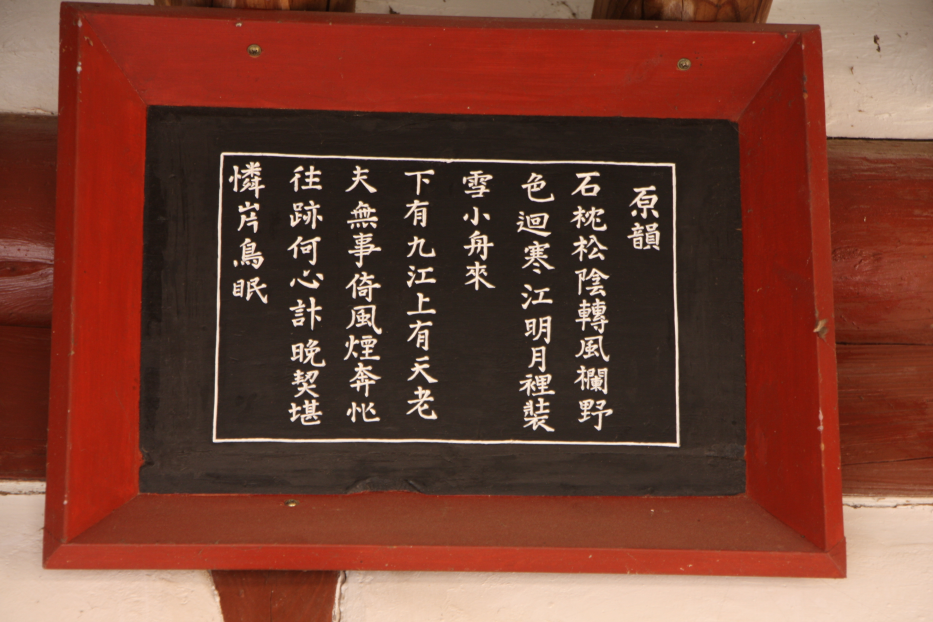 原韻
石枕松陰轉風欄野
色迴寒江明月裡裝
雪小舟來
下有九江上有天老
夫無事倚風煙奔忙
往跡何心計晩契堪
憐岸鳥眠